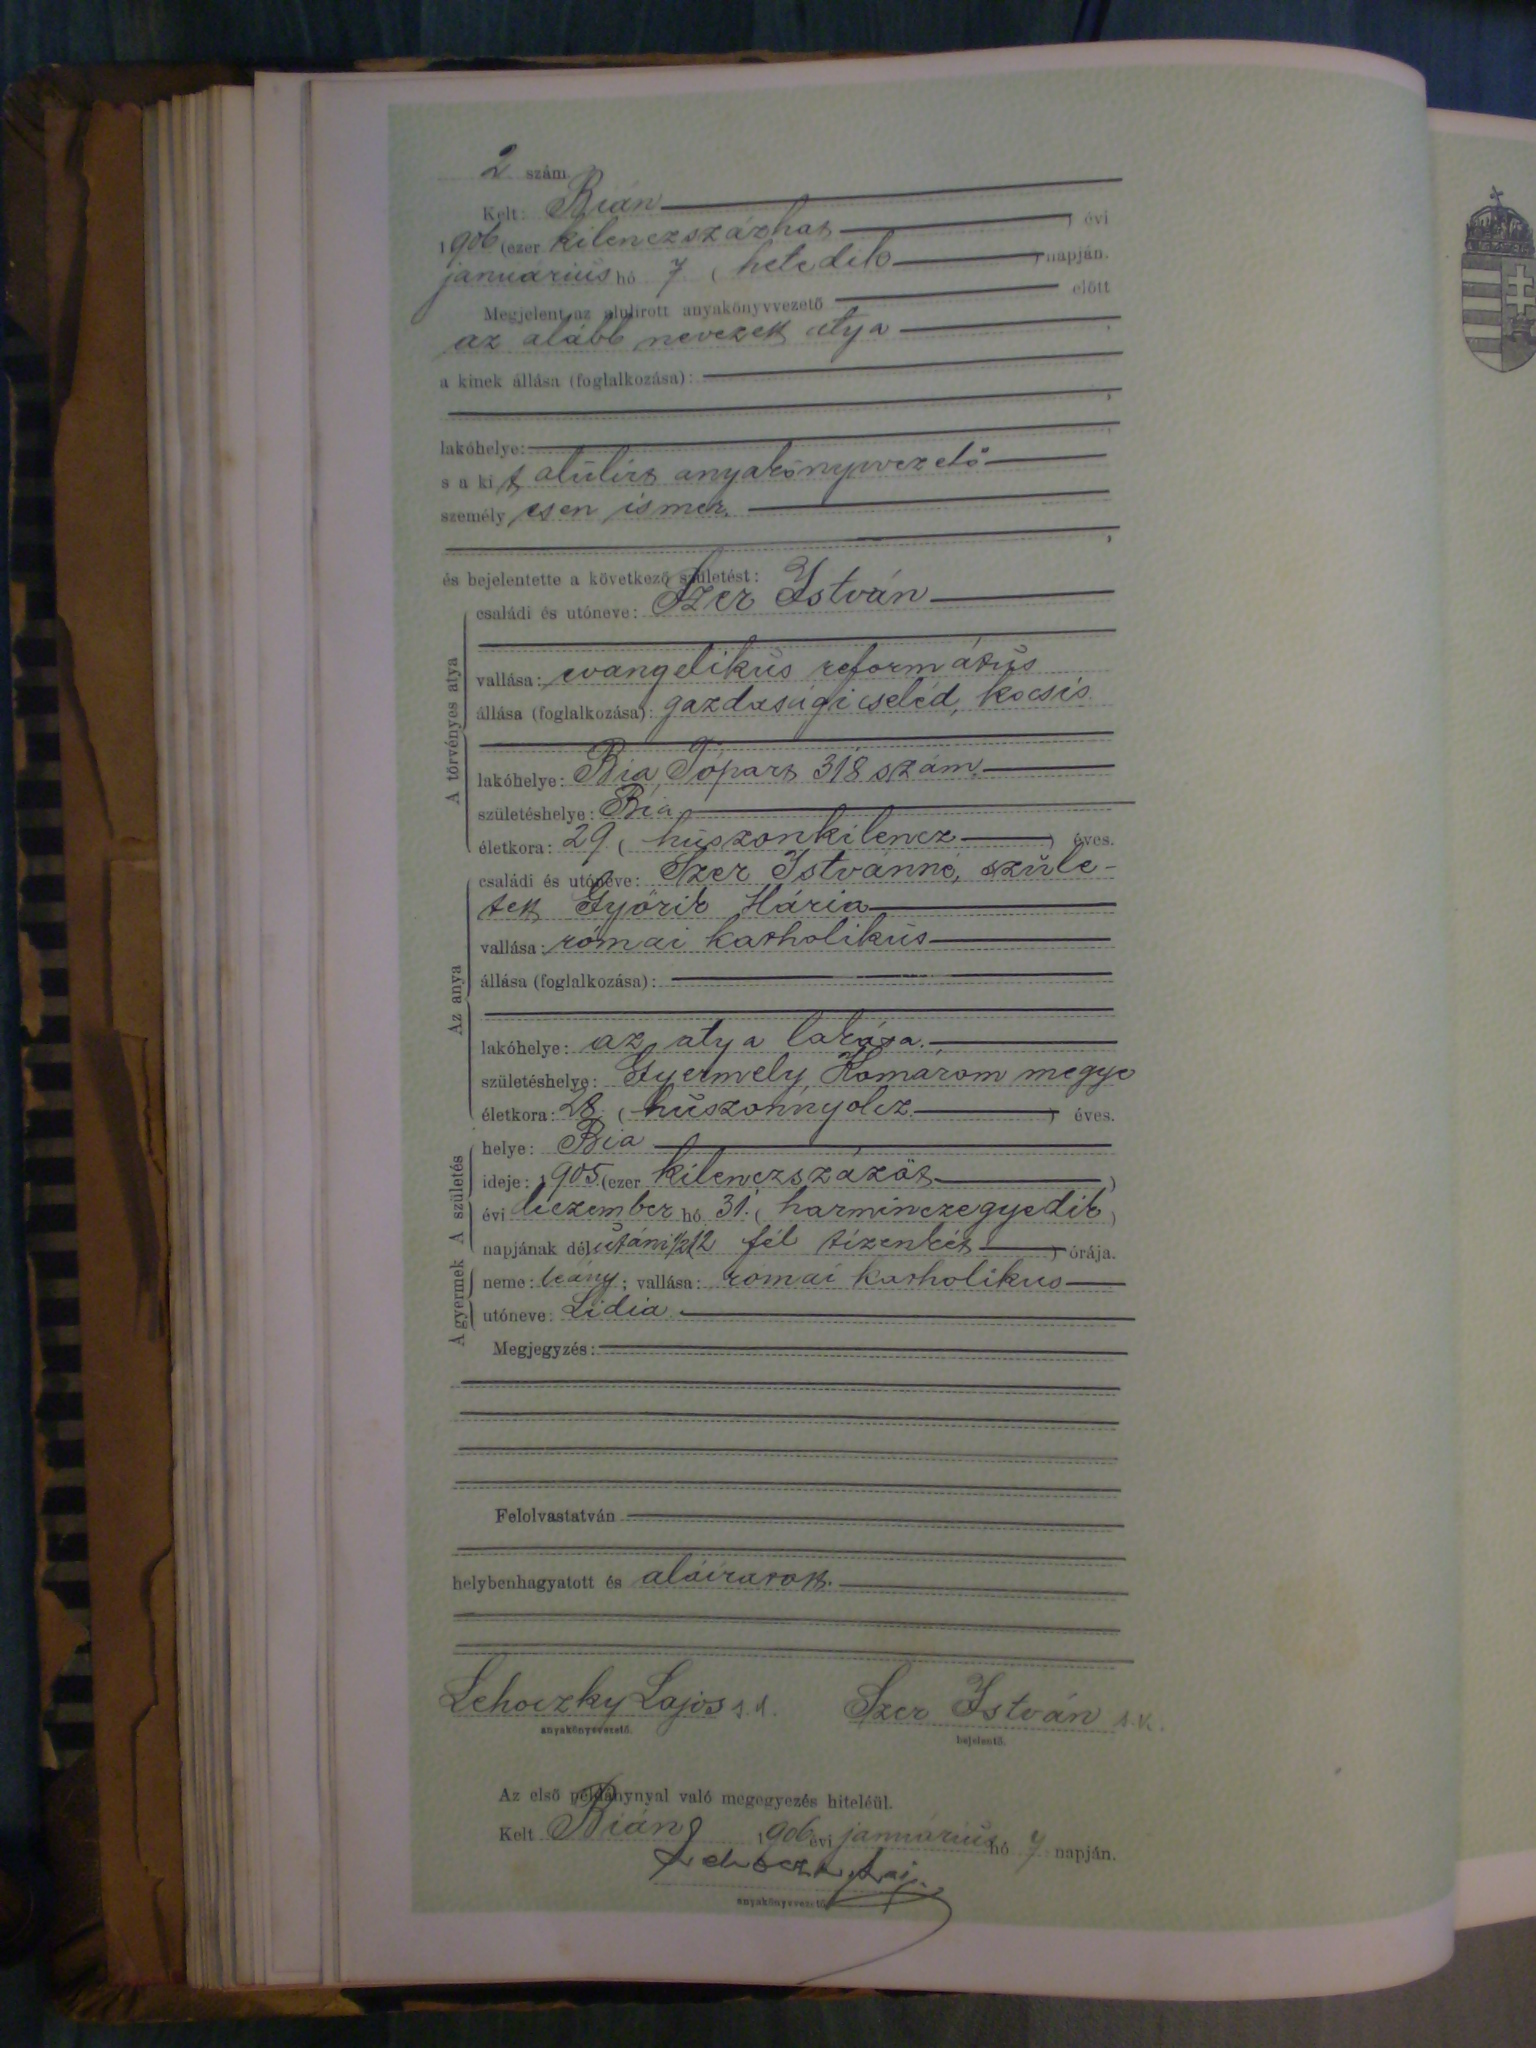 2 szám
Kelt: Bián
1906 (ezer kilenczszázhat ) évi
januárius hó 7 ( hetedik ) napján.
Megjelent az alulirott anyakönyvvezető előtt
az alább nevezett atya
a kinek állása (foglalkozása):
lakóhelye:
s a kit alúlirt anyakönyvvezető
személyesen ismer.
és bejelentette a következő születést:
A törvényes atya
családi és utóneve: Szer István
vallása: evangelikús reformátús
állása (foglalkozása): gazdasági cseléd, kocsis
lakóhelye: Bia, Tópart 318 szám.
születéshelye: Bia
életkora: 29 ( húszonkilencz ) éves.
Az anya
családi és utóneve: Szer Istvánné, szüle-
tett Győrik Mária
vallása: római katholikús
állása (foglalkozása):
lakóhelye: az atya lakása.
születéshelye: Gyermely, Komárom megye
életkora: 28 ( húszonnyolcz. ) éves.
A születés
helye: Bia
ideje: 1905. (ezer kilenczszázöt )
évi deczember hó 31. ( harminczegyedik )
napjának délutáni 1/2 12 fél tizenkét ) órája.
A gyermek
neme: leány; vallása: romai katholikus
utóneve: Lidia.
Megjegyzés:
Felolvastatván
helybenhagyatott és aláiratott.
Lehoczky Lajos s.k. Szer István s.k.
anyakönyvvezető. bejelentő.
Az első példánynyal való megegyezés hiteléül.
Kelt Bián 1906 évi januárius hó 7 napján.
Lehoczky Laj.
anyakönyvvezető